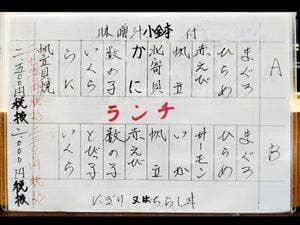 味噌汁小鉢 付
A
まぐろ
ひらめ
赤えび
帆立
北寄貝
かに
数の子
いくら
うに
帆立貝焼
二、五〇〇円 税抜
ランチ
B
まぐろ
サーモン
いか
帆立
赤えび
数の子
とび子
いくら
二、〇〇〇円 税抜
にぎり 又は ちらし丼